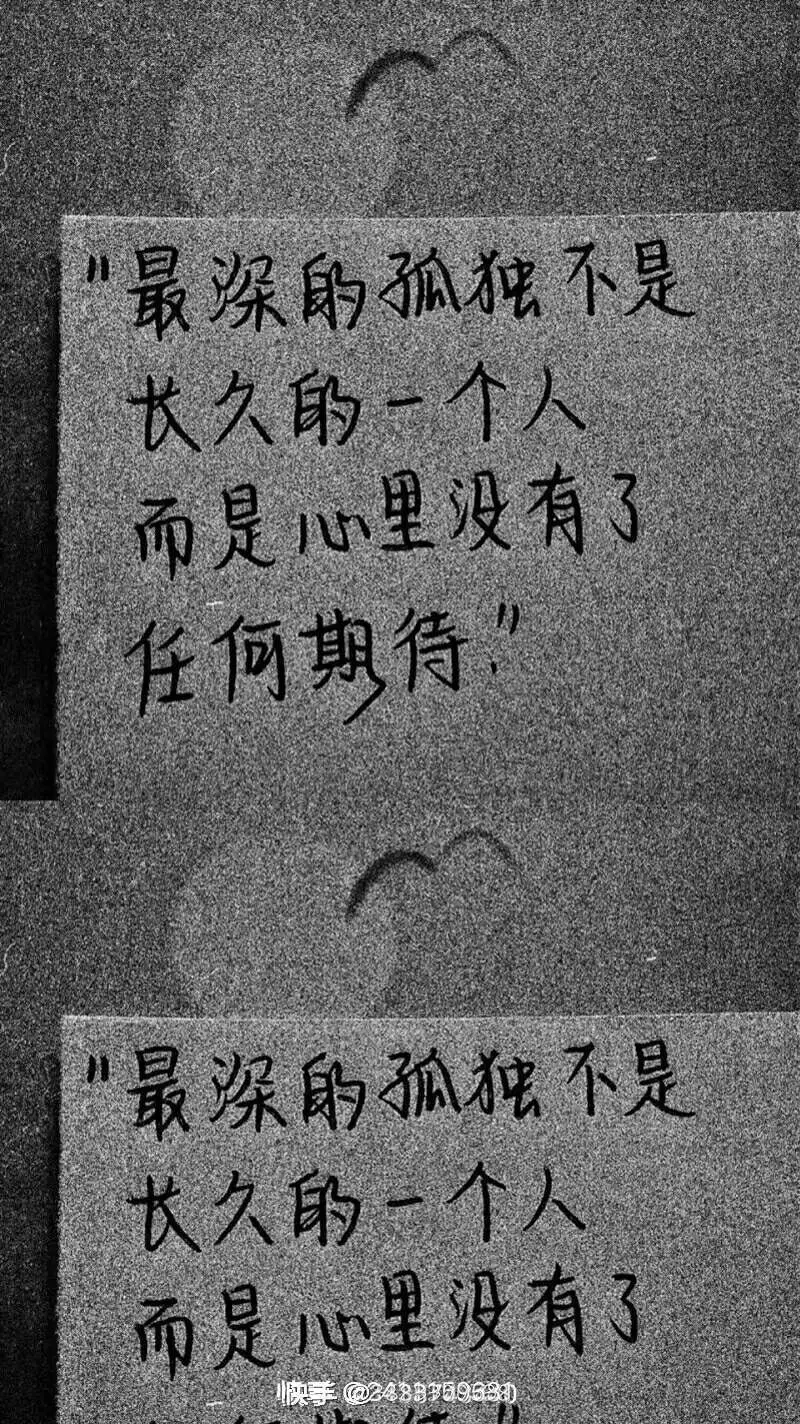 "最深的孤独不是
长久的一个人
而是心里没有了
任何期待."
"最深的孤独不是
长久的一个人
而是心里没有了
快手